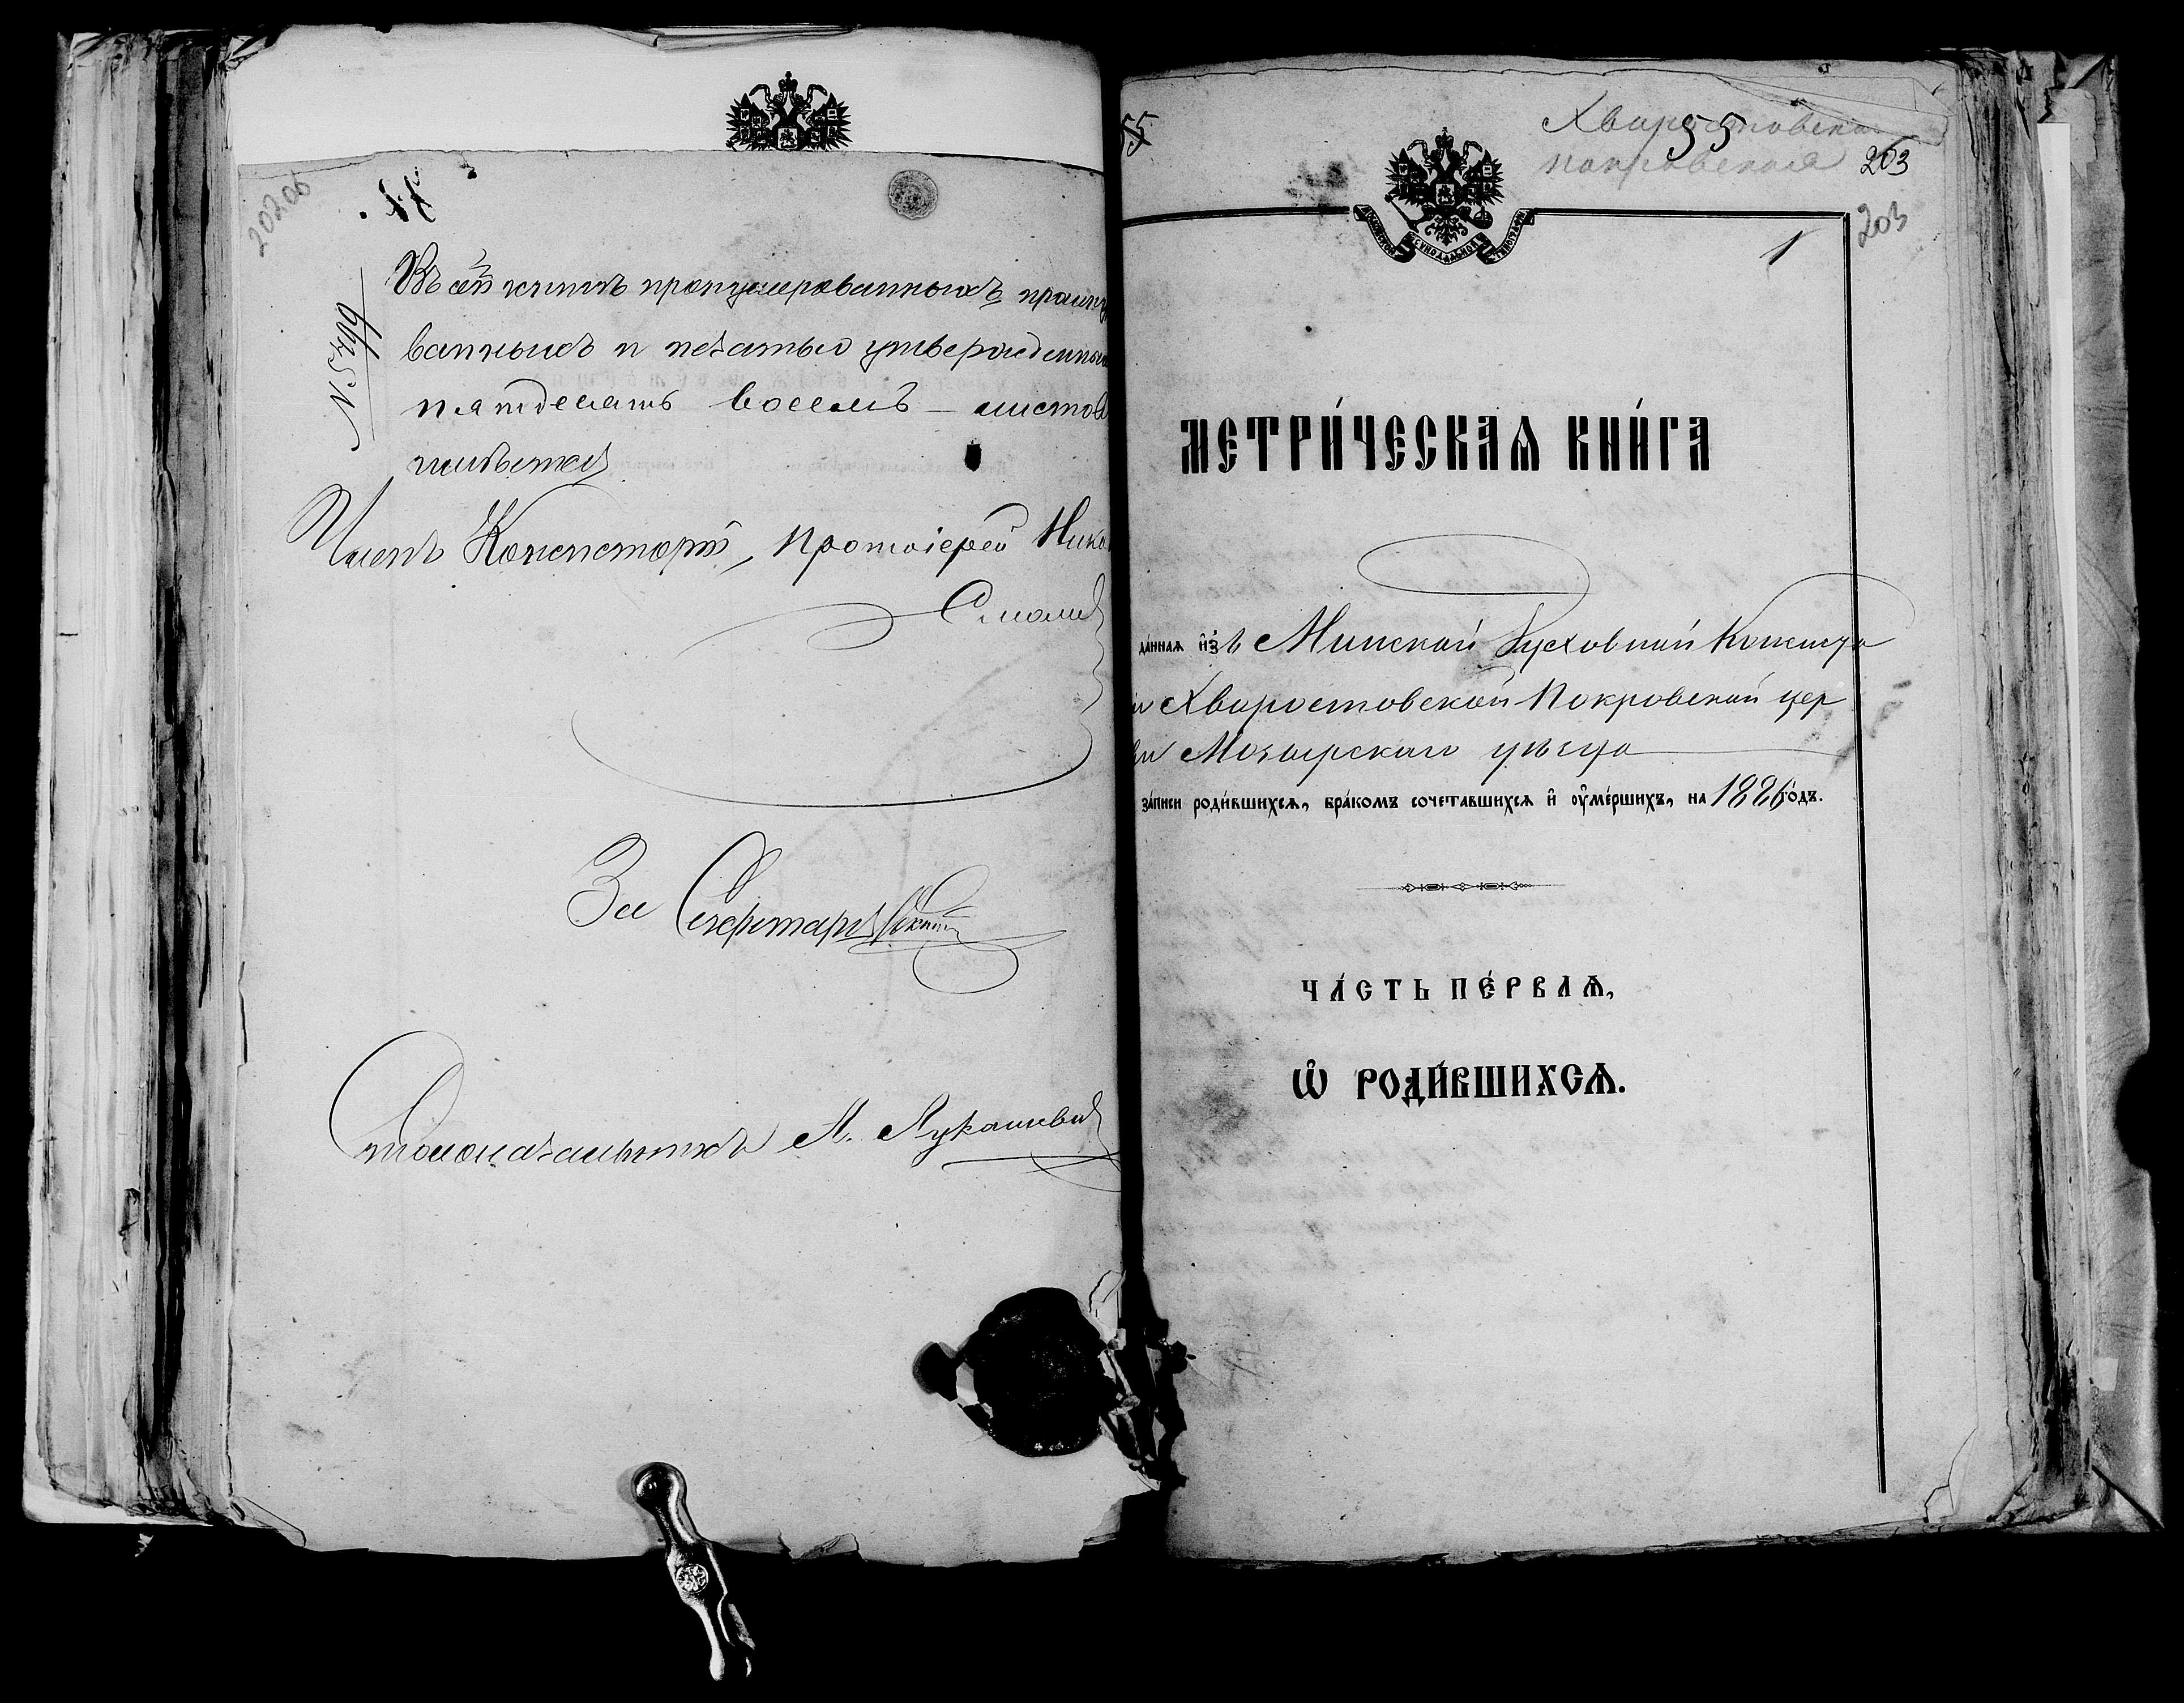 202об
№ 5799
Въ сей книгѣ пронумерованныхъ прошну
ванныхъ и печатью утвержденны
пятдесятъ восемь - листов
имѣется
Членъ Консисторіи, Протоіерей Нико
За Секретаря
Столоначальникъ А. Лукашевич
55
Хворостовская
55
Покровская
203
203
МОСКОВСКОЙ СѴНОДАЛЬНОЙ ТИПОГРАФІИ
1
МЕТРИ́ЧЕСКАѦ КНИ́ГА
да́ннаѧ и҆зъ Минской Духовной Консисто
и Хворостовской Покровской цер
ви Мозырскаго уѣзда
за́писи роди́вшихсѧ, бра́комъ сочета́вшихсѧ и҆ ᲂу҆ме́ршихъ, на 1886 го́дъ.
ЧА́СТЬ ПЕ́РВАѦ,
Ѡ҆ РОДИ́ВШИХСѦ.